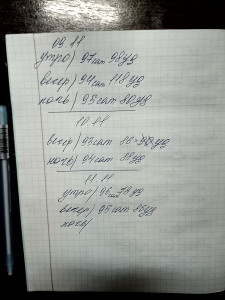 09.11
утро) 97 сат 98 уд
вечер) 94 сат 118 уд
ночь) 95 сат 80 уд
10.11
вечер) 93 сат 86-90 уд
ночь) 94 сат 88 уд
11.11
утро) 96 сат 78 уд
вечер) 95 сат 85 уд
ночь)